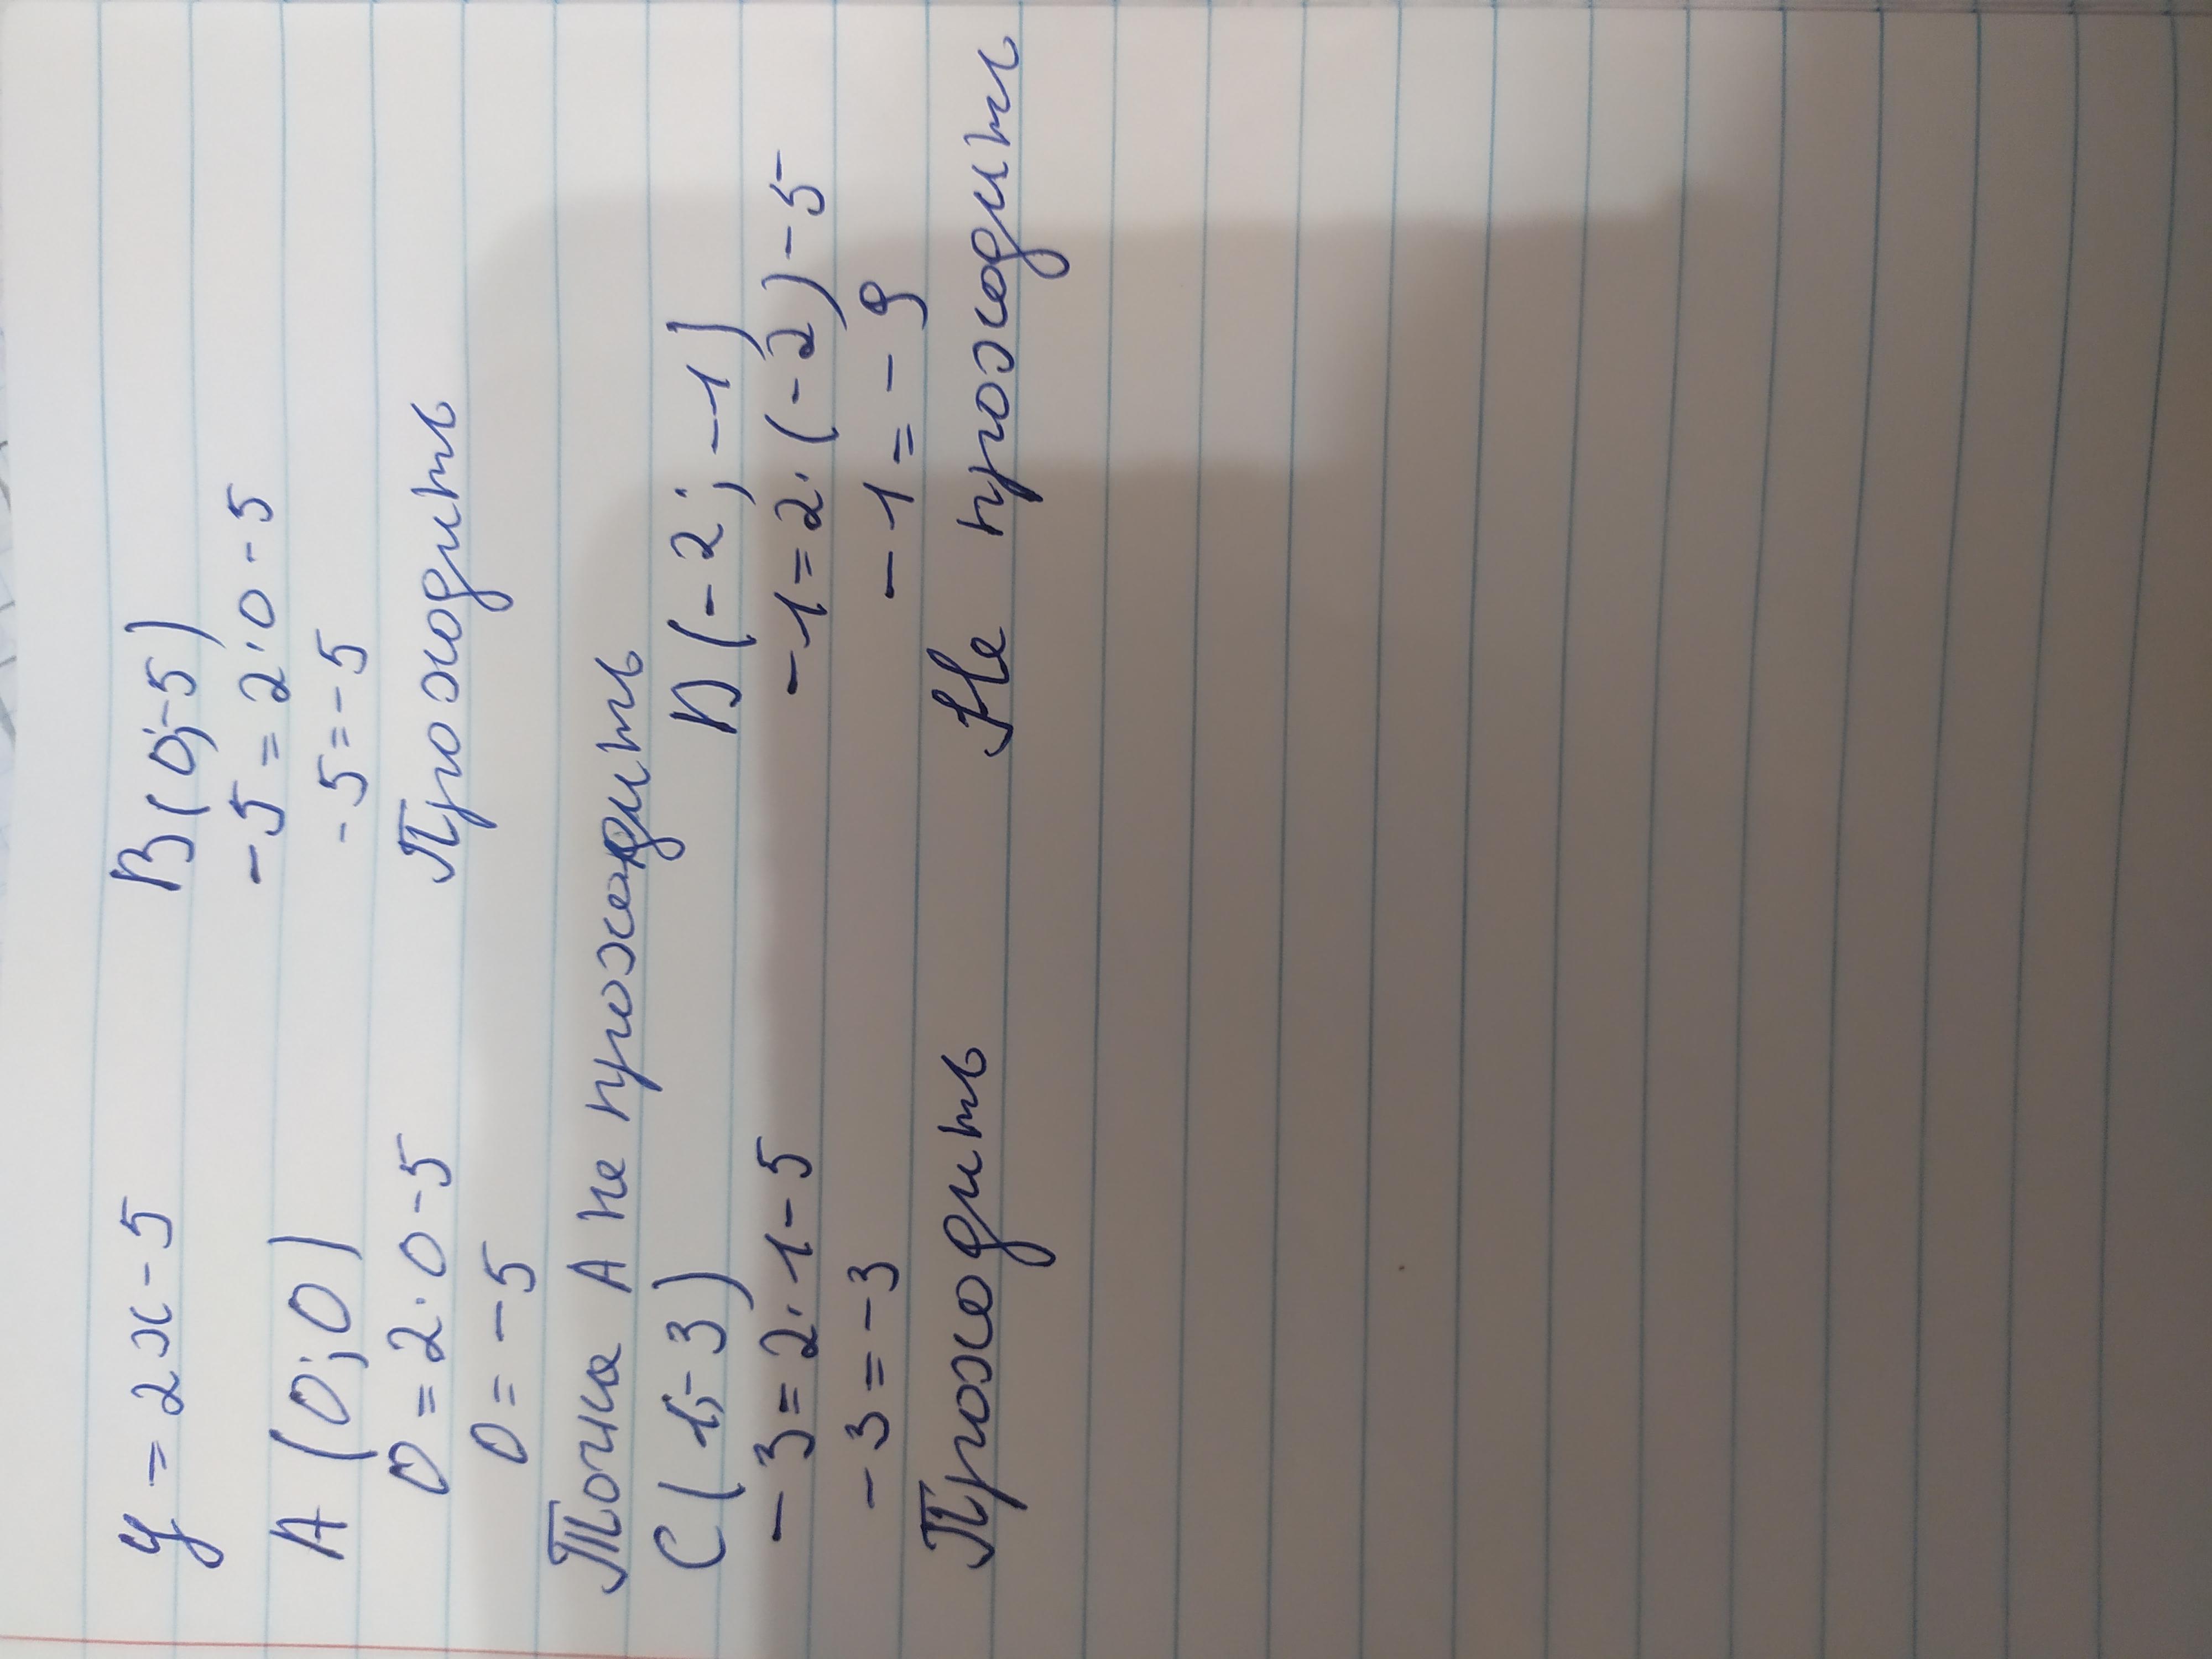 y = 2x - 5
B(0;-5)
A (0;0)
-5 = 2·0-5
0 = 2·0-5
-5 = -5
0 = -5
Проходить
Точка А не проходить
C(1;-3)
D(-2;-1)
-3 = 2·1-5
-1 = 2·(-2)-5
-3 = -3
-1 = -9
Проходить
Не проходить